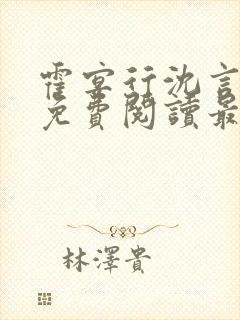 霍宴行沈言
免費閱讀最
林澤貴